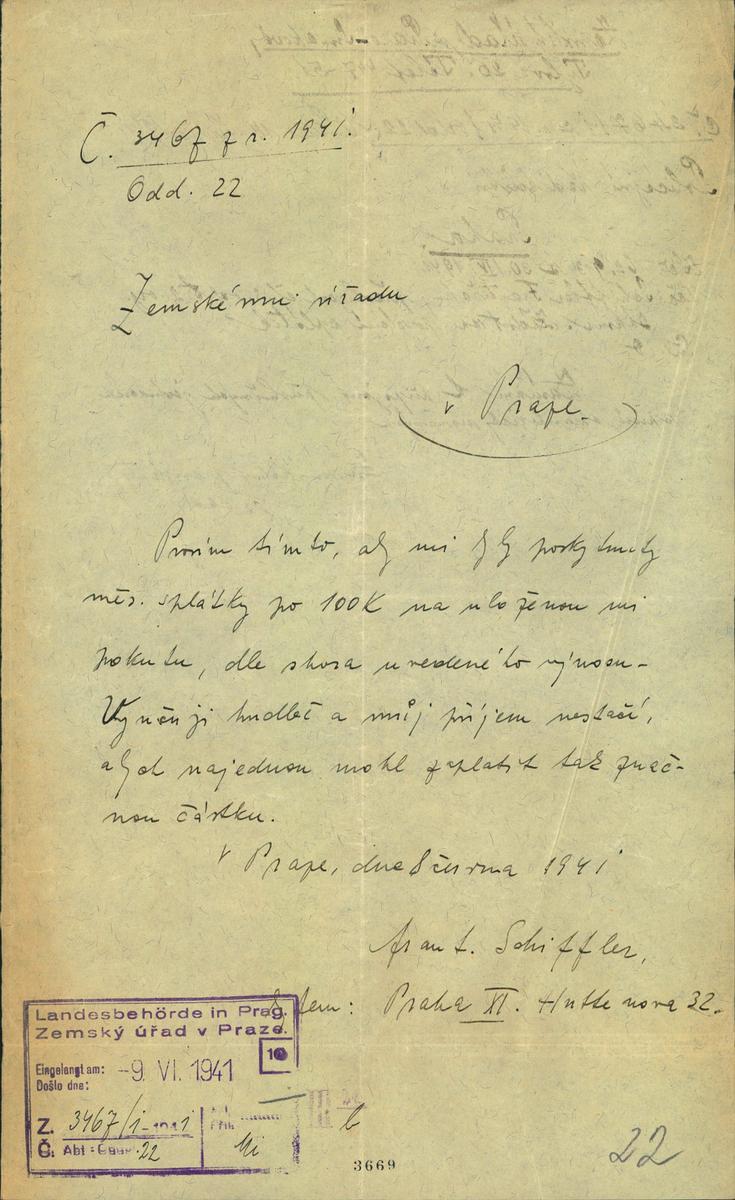 Č. 3467 z r. 1941.
Odd. 22
Zemskému úřadu
v Praze.
Prosím tímto, aby mi byly poskytnuty
měs. splátky po 100K na uloženou mi
pokutu, dle shora uvedeného výnosu.
Vyučuji hudbě a můj příjem nestačí,
abych najednou mohl zaplatit tak znač-
nou částku.
V Praze, dne 8 června 1941
Frant. Schiffler,
Praha XI. Husse nova 32.
Landesbehörde in Prag.
Zemský úřad v Praze.
10
Eingelangt am:
Došlo dne:
-9. VI. 1941
Z. 3467/1-1941
Č. Abt: 22
3669
22